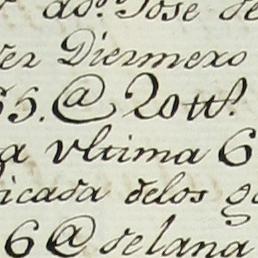 ad.º Jose de
Diezmero
65. @ 20 ttt.
a vltima 6
icada delos g
6 @ de lana